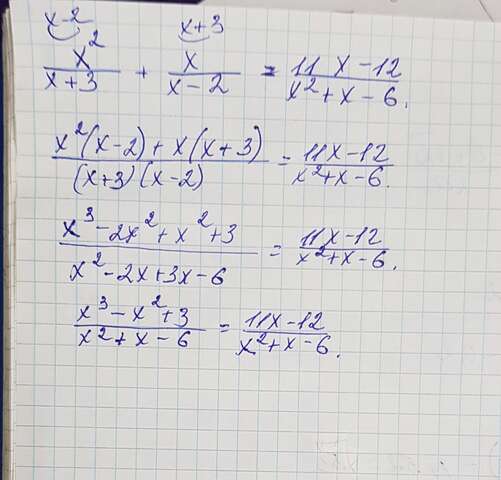 x-2 x+3
x²/(x+3) + x/(x-2) = (11x-12)/(x²+x-6).
(x²(x-2)+x(x+3))/((x+3)(x-2)) = (11x-12)/(x²+x-6).
(x³-2x²+x²+3)/(x²-2x+3x-6) = (11x-12)/(x²+x-6).
(x³-x²+3)/(x²+x-6) = (11x-12)/(x²+x-6).